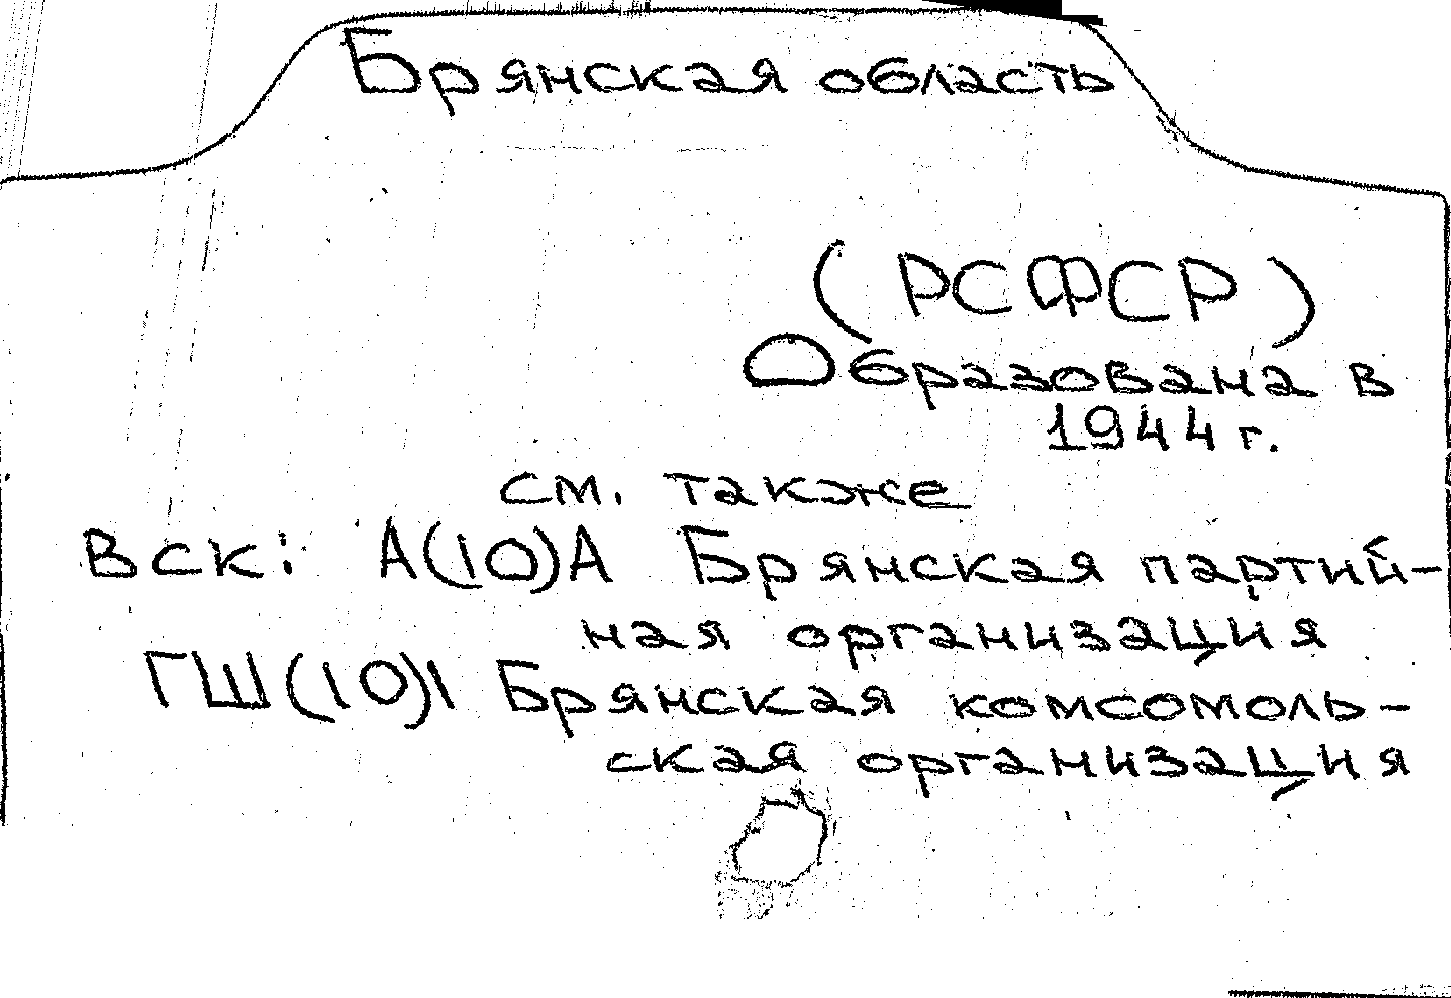 Брянская область
(РСФСР)
Образована в
1944 г.
см. также
ВСК: А(10)А Брянская партий-
ная организация
ГШ(10)1 Брянская комсомоль-
ская организация